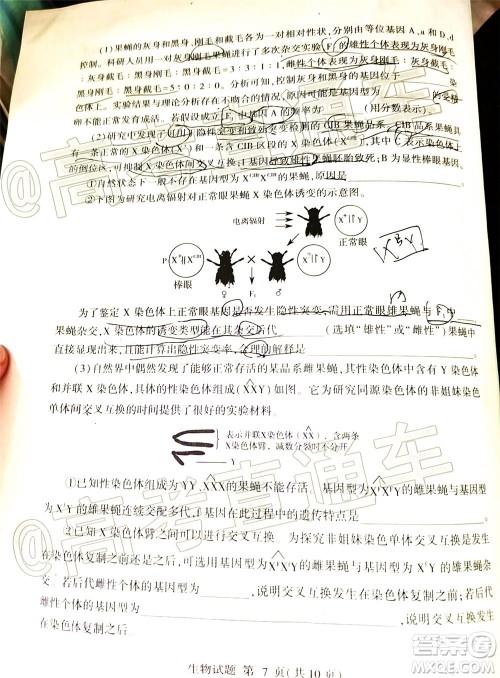 (1)果蝇的灰身和黑身、刚毛和截毛各为一对相对性状,分别由等位基因 A、a 和 D、d
控制。科研人员用一对灰身刚毛果蝇进行了多次杂交实验,F₁的雄性个体表现为灰身刚毛
:灰身截毛:黑身刚毛:黑身截毛=3:3:1:1,雌性个体表现为灰身刚毛:灰身截毛:黑
身刚毛:黑身截毛=5:0:2:0。分析可知,控制灰身和黑身的基因位于 染
色体上。实验结果与理论分析存在不吻合的情况,原因可能是基因型为 的受精
卵不能正常发育。若假设成立,F₁中基因 A 的频率为 (用分数表示)。
(2)研究中发现了可用于隐性突变和致死突变检测的 ClB 果蝇品系,ClB 品系果蝇具
有一条正常的 X 染色体(X⁺)和一条含 ClB 的 X 染色体(Xᶜˡᴮ),其中 C 表示存在染色体上
的倒位区,可抑制X染色体间交叉互换;l 基因导致雄性果蝇胚胎致死;B 为显性棒眼基因。
①自然状态下一般不存在基因型为 XᶜˡᴮXᶜˡᴮ的果蝇,原因是
②下图为研究电离辐射对正常眼果蝇 X 染色体诱变的示意图。
电离辐射
P X⁺∥Xᶜˡᴮ × X∥Y 正常眼
棒眼 ♀ F₁ ♂
为了鉴定 X 染色体上正常眼基因是否发生隐性突变,需用正常眼雄果蝇与 F₁中
果蝇杂交,X 染色体的诱变类型能在其杂交后代 (选填“雄性”或“雌性”)果蝇中
直接显现出来,且能计算出隐性突变率,合理的解释是
(3)自然界中偶然发现了能够正常存活的某品系雌果蝇,其性染色体中含有 Y 染色体
和并联 X 染色体,具体的性染色体组成 X^XY 如图。它为研究同源染色体的非姐妹染色
单体间交叉互换的时间提供了很好的实验材料。
表示并联X染色体(X^X),含两条
X染色体臂,减数分裂时不分开
Y
①已知性染色体组成为 YY、XXX的果蝇不能存活。基因型为 X¹X¹Y的雌果蝇与基因型
为 X¹Y的雄果蝇连续交配多代,其在此过程中的遗传特点是
②已知 X 染色体臂之间可发生交叉互换。为探究非姐妹染色单体交叉互换是发生
在染色体复制之前还是之后,可选用基因型为 的雌果蝇与基因型为 X¹Y 的雄果蝇
杂交:若后代雌性个体的基因型为 ,说明交叉互换发生在染色体复制之前;若后代
雌性个体的基因型为 ,说明交叉互换发生在
染色体复制之后。
生物试题 第 7 页(共 10 页)
XᴮY
高考直通车
答案圈